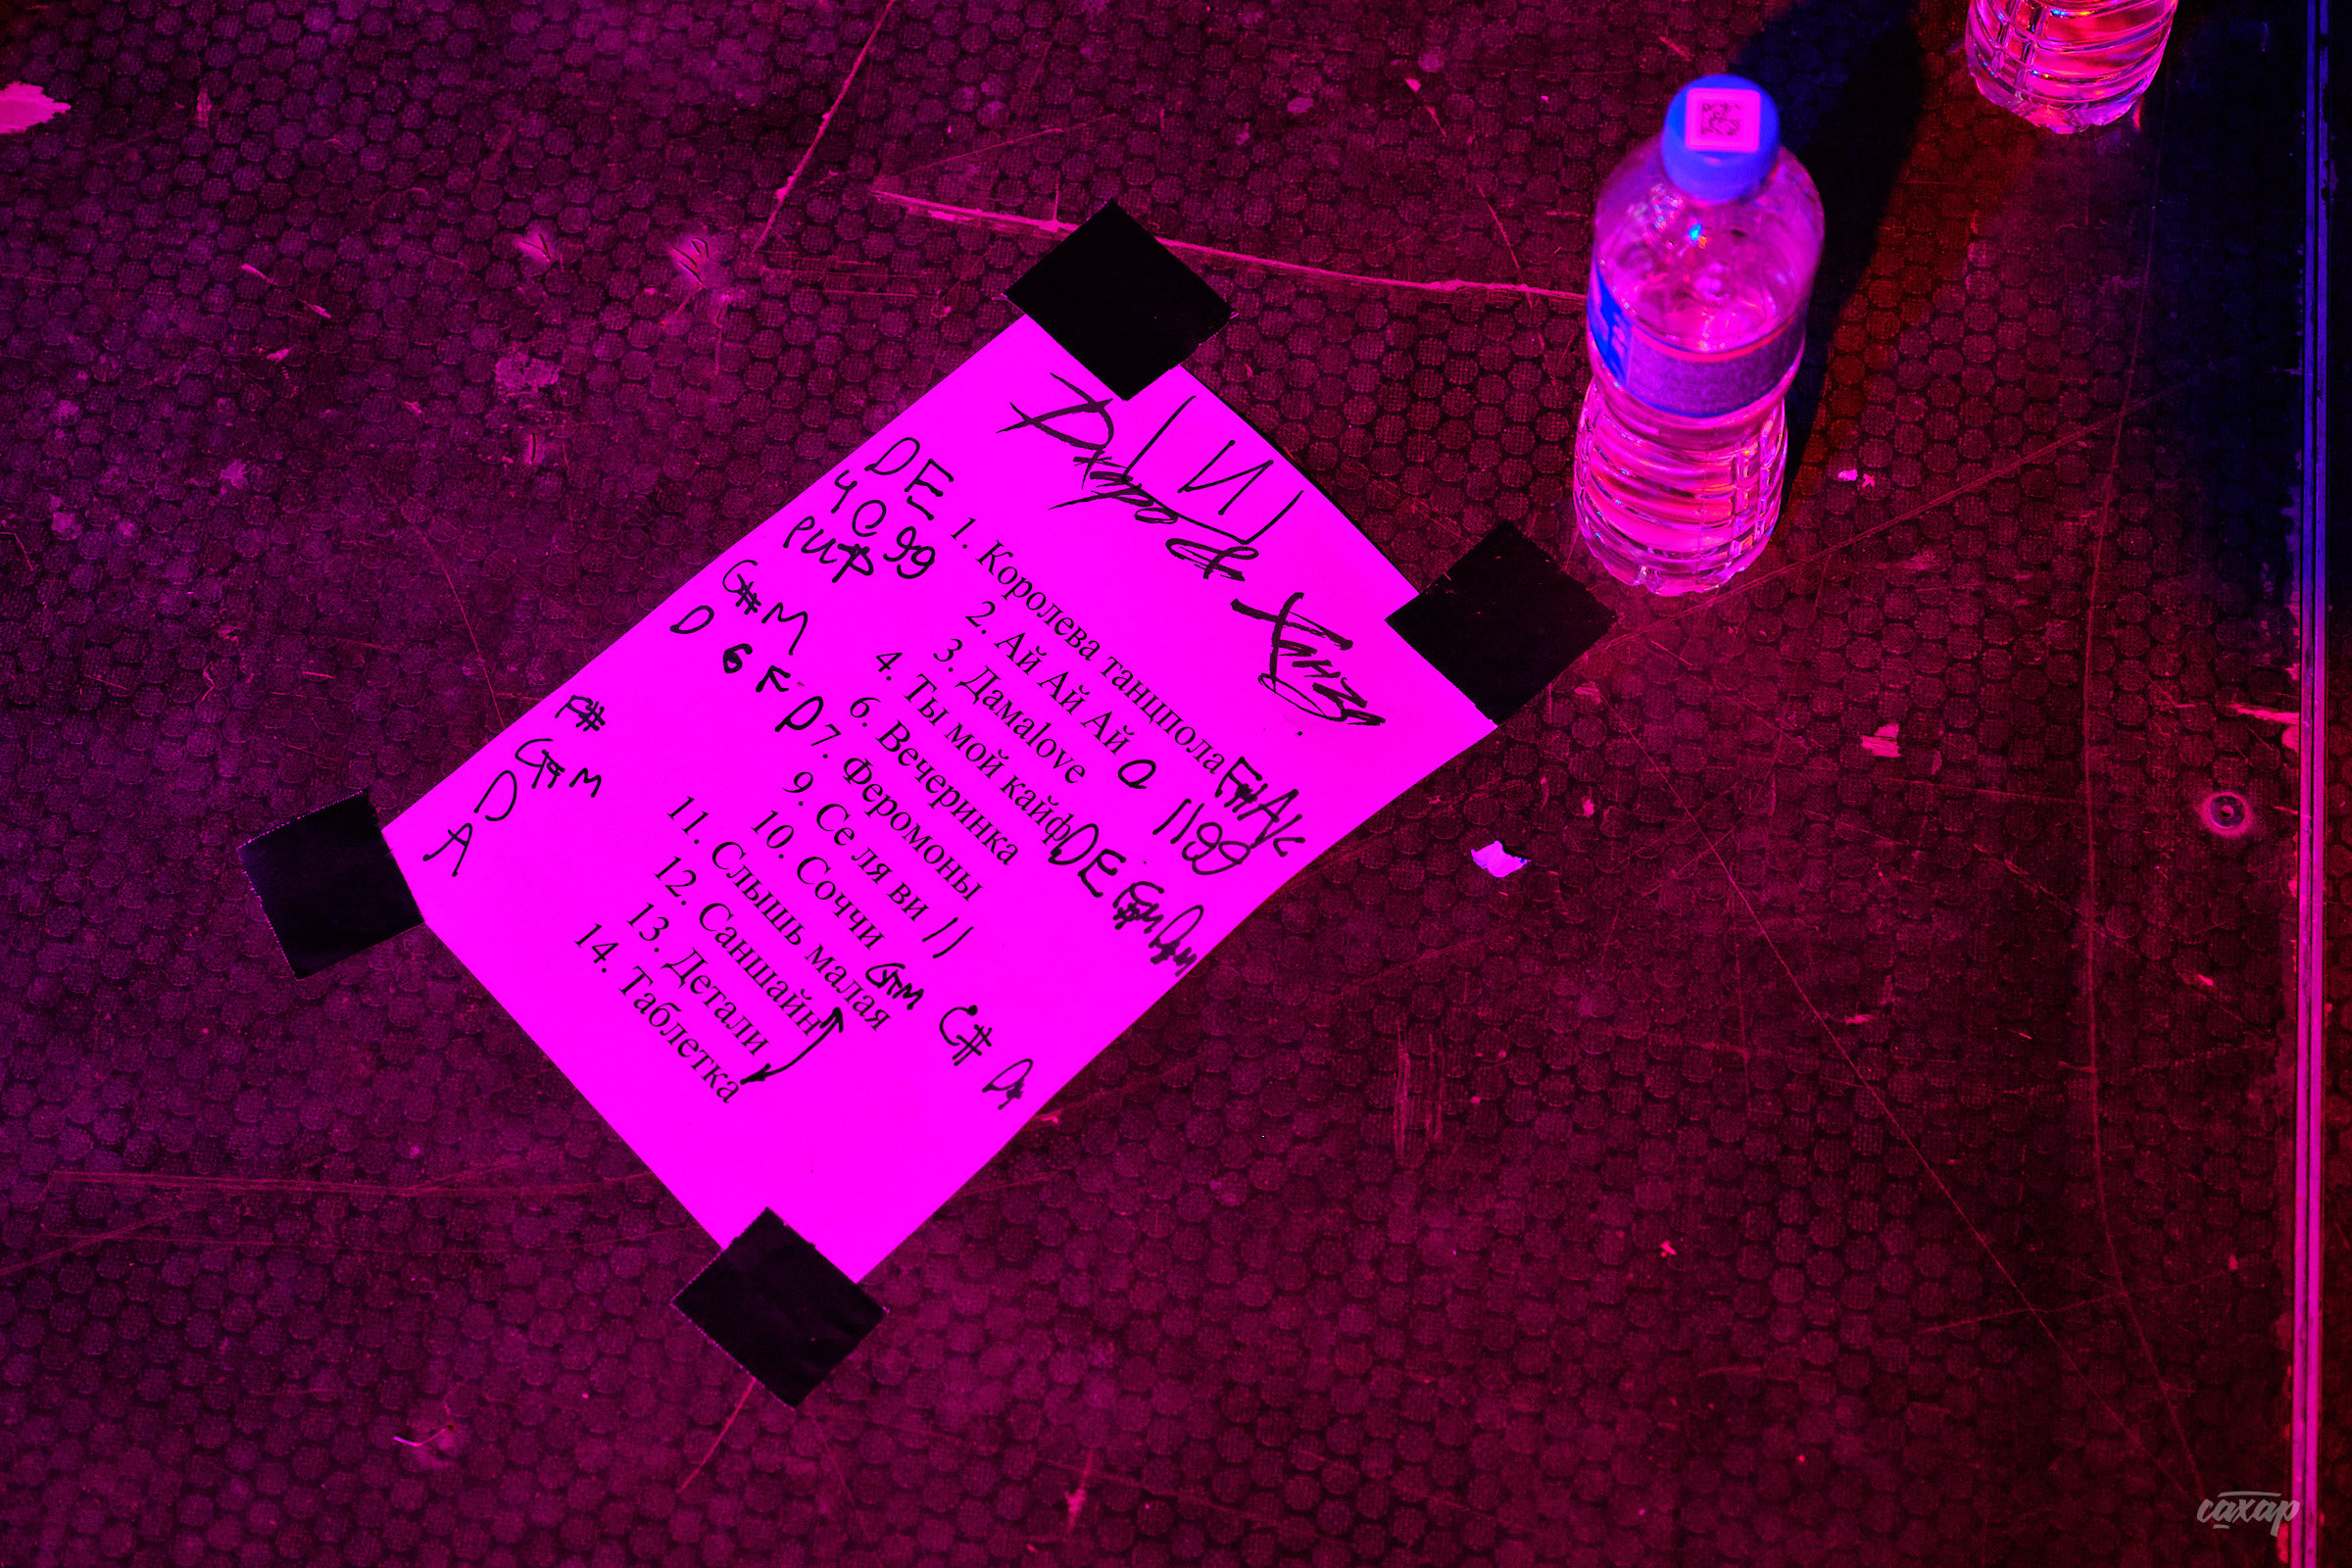 DE
1. Королева танцпола
2. Ай Ай Ай
3. Дамаlove
4. Ты мой кайф DE
6. Вечеринка
7. Феромоны
9. Се ля ви //
10. Соччи
11. Слышь малая
12. Саншайн
13. Детали
14. Таблетка
G#M
D G F D
F#
G#M
D
A
C#
сахар